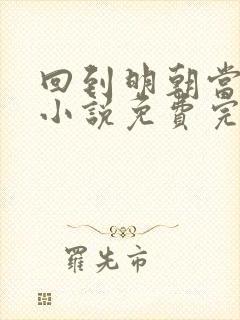 回到明朝當
小說免費完
羅先市